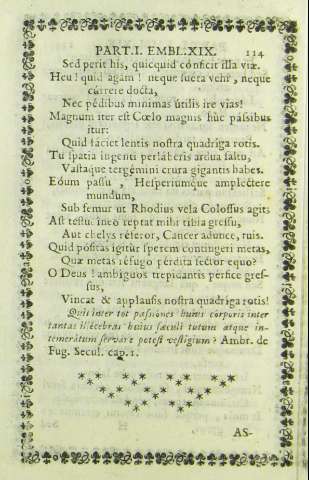 PART. I. EMBL. XIX. 114
Sed perit his, quicquid conficit illa viæ.
Heu! quid agam! neque sueta vehi, neque
currere docta,
Nec pédibus minimas útilis ire vias!
Magnum iter est Cœlo magnis húc pássibus
itur:
Quid fáciet lentis nostra quadriga rotis.
Tu spatia ingenti perláberis ardua saltu,
Vastaque tergémini crura gigantis habes.
Eóum passu, Hesperiumque amplectere
mundum,
Sub femur ut Rhodius vela Colossus agit:
Ast testu. ineo reptat mihi tibia gressu,
Aut chelys réferor, Cancer adunce, tuis.
Quid pósitas igitur sperem contingeri metas,
Quæ metas réfugo pérdita sector equo?
O Deus! ambiguos trepidantis pérfice gres-
sus,
Vincat & applausis nostra quadriga rotis!
Quis inter tot passiónes huius corporis inter
tantas illécebras huius sæculi tutum atque in-
temerátum servare potest vestigium? Ambr. de
Fug. Secul. cap. 1.
AS-